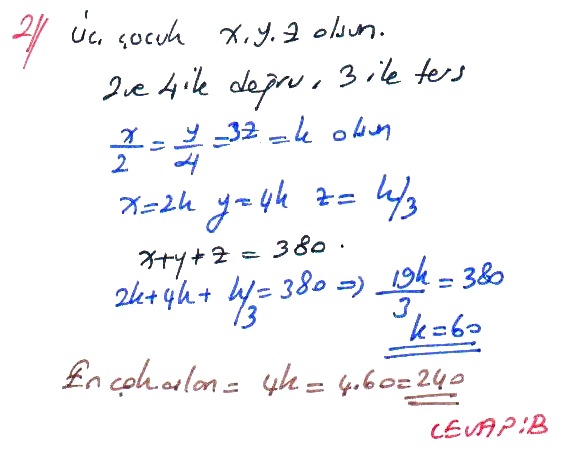 2// üç çocuk x.y.z olsun.
2 ve 4 ile doğru, 3 ile ters
x/2 = y/4 = 3z = k olsun
x=2k y=4k z= k/3
x+y+z = 380.
2k+4k+ k/3 = 380 => 19k/3 = 380
k=60
En çok alan = 4k = 4.60=240
CEVAP:B